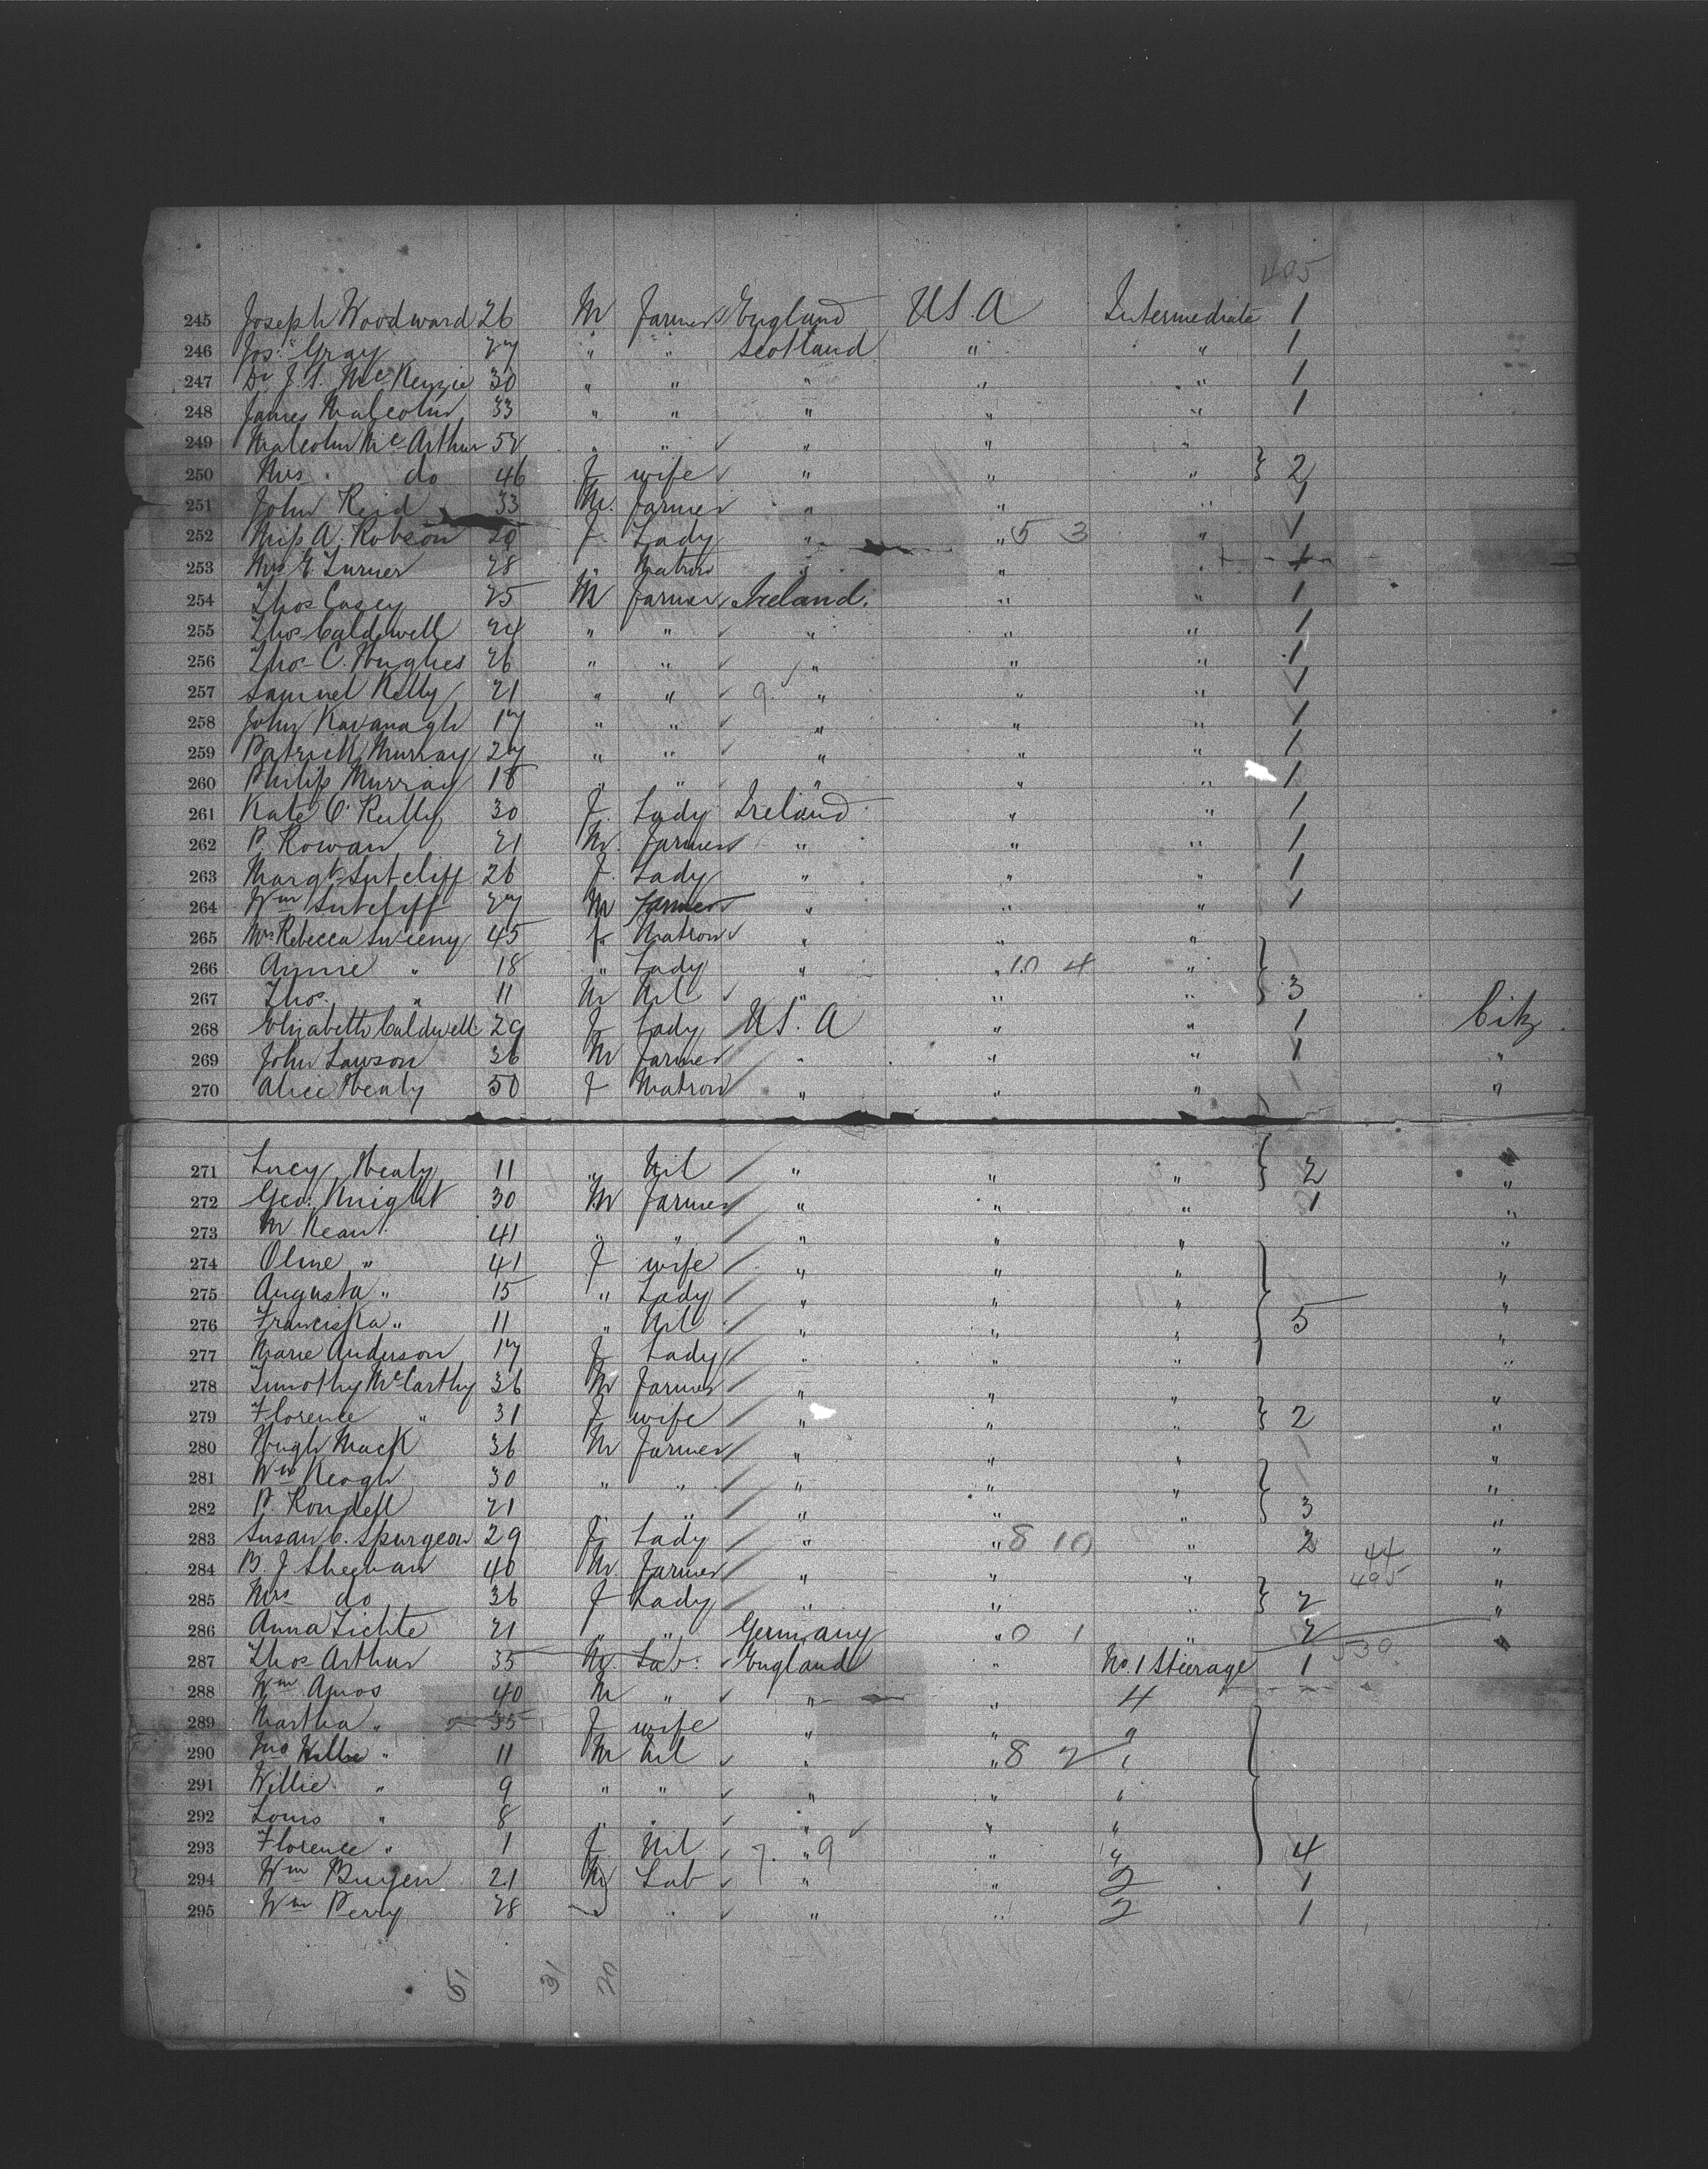 495
245 Joseph Woodward 26 M Farmer England U.S.A Intermediate 1
246 Jos. Gray 27 " " Scotland " " 1
247 Dr J. S. McKenzie 30 " " " " " 1
248 James Malcolm 33 " " " " " 1
249 Malcolm McArthur 52 " " " " "
250 Mrs " do 46 F wife " " " } 2
251 John Reid 33 M. Farmer " " " 1
252 Miss A. Robson 20 F Lady " " 5 3 " 1
253 Mrs E. Turner 28 " Matron " " " 1
254 Thos Casey 25 M Farmer Ireland. " " 1
255 Thos Caldwell 24 " " " " " 1
256 Thos C. Hughes 26 " " " " " 1
257 Samuel Kelly 21 " " 9 " " " 1
258 John Kavanagh 17 " " " " " 1
259 Patrick Murray 27 " " " " " 1
260 Philip Murray 18 " " " " " 1
261 Kate O'Reilly 30 F. Lady Ireland " " 1
262 P. Rowan 21 M. Farmer " " " 1
263 Margt Sutcliff 26 F. Lady " " " 1
264 Wm Sutcliff 27 M Farmer " " " 1
265 Mrs Rebecca Sweeny 45 F Matron " " "
266 Annie " 18 " Lady " " 10 4 "
267 Thos " 11 M Nil " " " } 3
268 Elizabeth Caldwell 29 F Lady U.S.A " " 1 Citz.
269 John Lawson 36 M Farmer " " " 1 "
270 Alice Healy 50 F Matron " " " "
271 Lucy Healy 11 " Nil " " " } 2 "
272 Geo. Knight 30 M Farmer " " " 1 "
273 M. Kean 41 " " " " " "
274 Oline " 41 F wife " " " "
275 Augusta " 15 " Lady " " " "
276 Franciska " 11 " Nil " " " } 5 "
277 Marie Anderson 17 F Lady " " " "
278 Timothy McCarthy 36 M Farmer " " " "
279 Florence " 31 F wife " " " } 2 "
280 Hugh Mack 36 M Farmer " " " "
281 Wm Keogh 30 " " " " " "
282 P. Rondell 21 " " " " " } 3 "
283 Susan C. Spurgeon 29 F Lady " " 8 10 " 2 44 "
284 B. J. Sheehan 40 M. Farmer " " " 495 "
285 Mrs do 36 F Lady " " " } 2 "
286 Anna Lichte 21 " " Germany " 0 1 " 2 "
287 Thos Arthur 35 M. Lab. England " No. 1 Steerage 1 539.
288 Wm Amos 40 M " " " 4
289 Martha " 35 F wife " " "
290 Jno " 11 M Nil " " 8 2 "
291 Willie " 9 " " " " "
292 Louis " 8 " " " " "
293 Florence " 1 F Nil 7. " 9 " " } 4
294 Wm 21 M Lab " " 2 1
295 Wm Perry 28 " " " 2 1
51 31 20